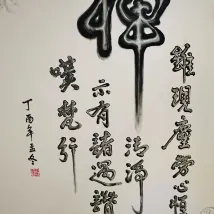 禪
雖現塵勞心恒
清淨
示有諸過讚
嘆梵行
丁酉年孟冬